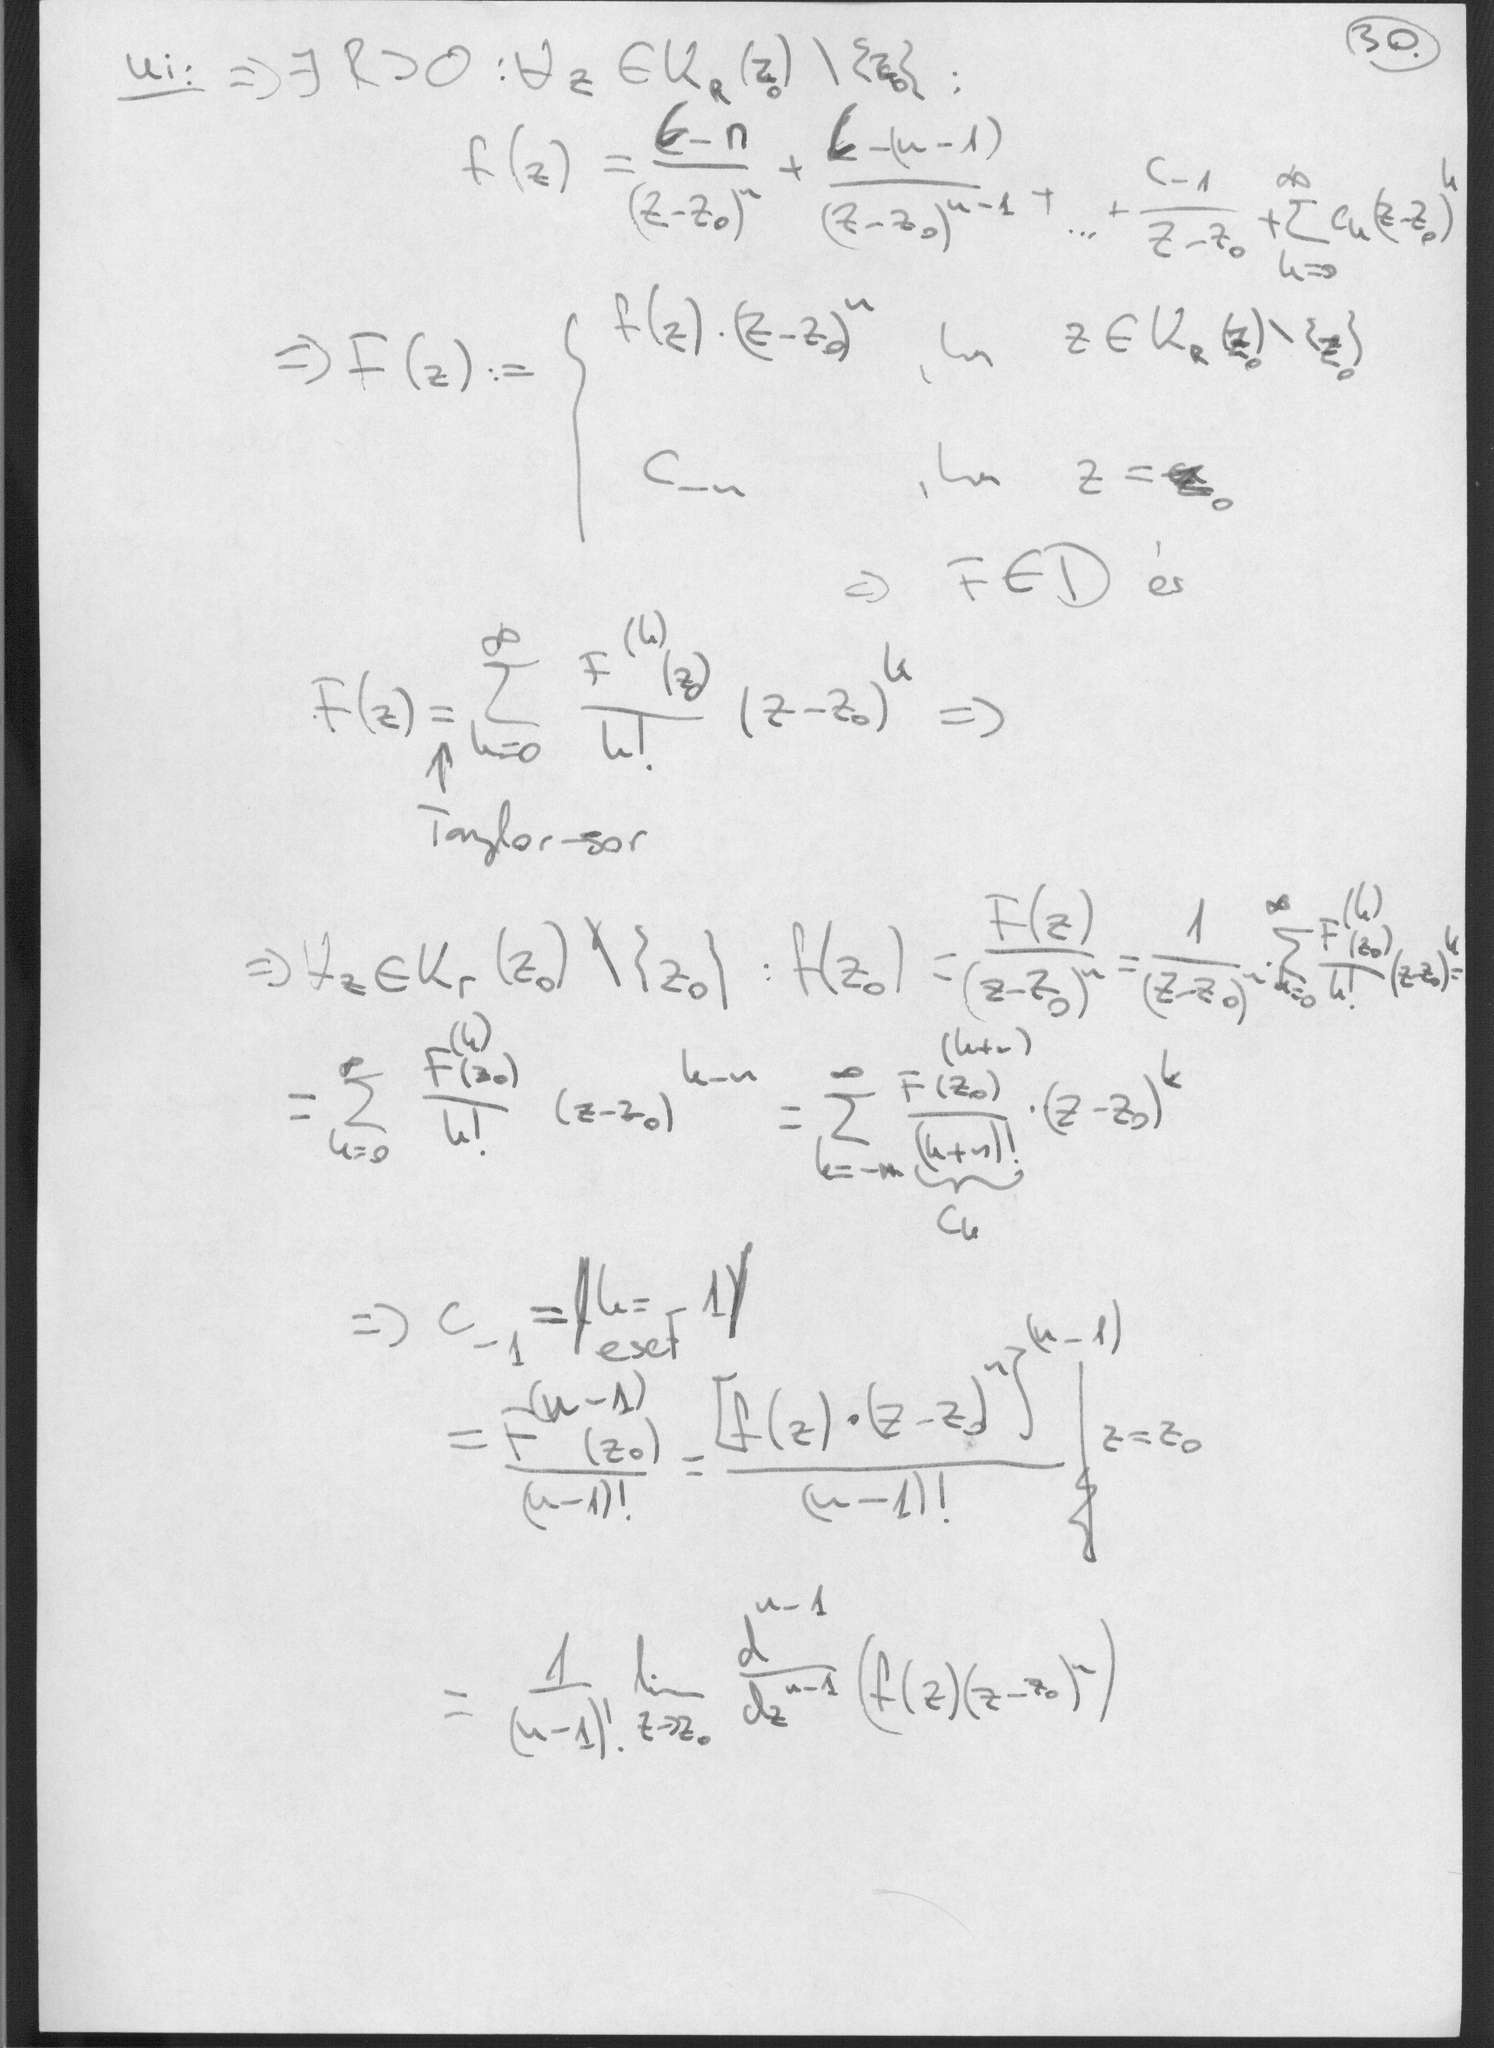 30.
ui: ⇒ ∃ R>0 : ∀z ∈ K_R(z_0) \ {z_0} :
f(z) = c_{-n}/(z-z_0)^n + c_{-(n-1)}/(z-z_0)^{n-1} + ... + c_{-1}/(z-z_0) + ∑_{k=0}^{∞} c_k (z-z_0)^k
⇒ F(z) := { f(z)·(z-z_0)^n , ha z ∈ K_R(z_0) \ {z_0}
c_{-n} , ha z = z_0
⇒ F ∈ D és
F(z) = ∑_{k=0}^{∞} F^{(k)}(z_0)/k! (z-z_0)^k ⇒
↑
Taylor-sor
⇒ ∀z ∈ K_r(z_0) \ {z_0} : f(z_0) = F(z)/(z-z_0)^n = 1/(z-z_0)^n · ∑_{k=0}^{∞} F^{(k)}(z_0)/k! (z-z_0)^k =
= ∑_{k=0}^{∞} F^{(k)}(z_0)/k! (z-z_0)^{k-n} = ∑_{k=-n}^{∞} F^{(k+n)}(z_0)/(k+n)! · (z-z_0)^k
c_k
⇒ c_{-1} = |k=-1|
eset
= F^{(n-1)}(z_0)/(n-1)! = [f(z)·(z-z_0)^n]^{(n-1)}/(n-1)! |_{z=z_0}
= 1/(n-1)! lim_{z→z_0} d^{n-1}/dz^{n-1} (f(z)(z-z_0)^n)